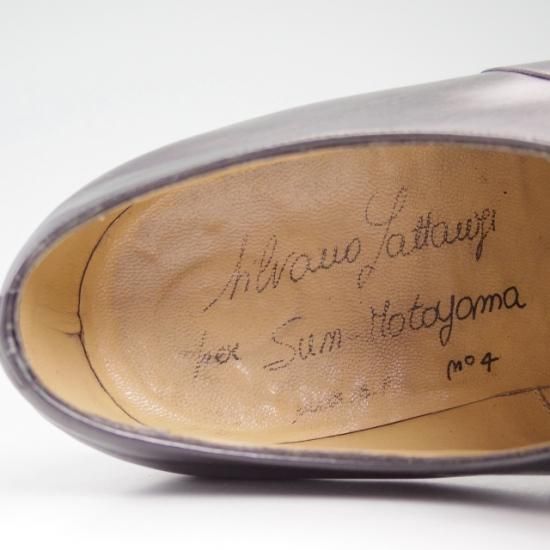 Silvano Lattanzi
per Sun-Motoyama
nº 4